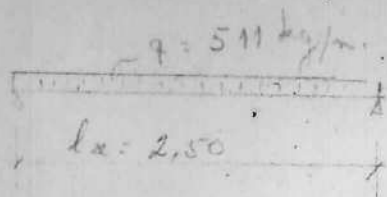 q = 511 kg/m.
lx = 2,50